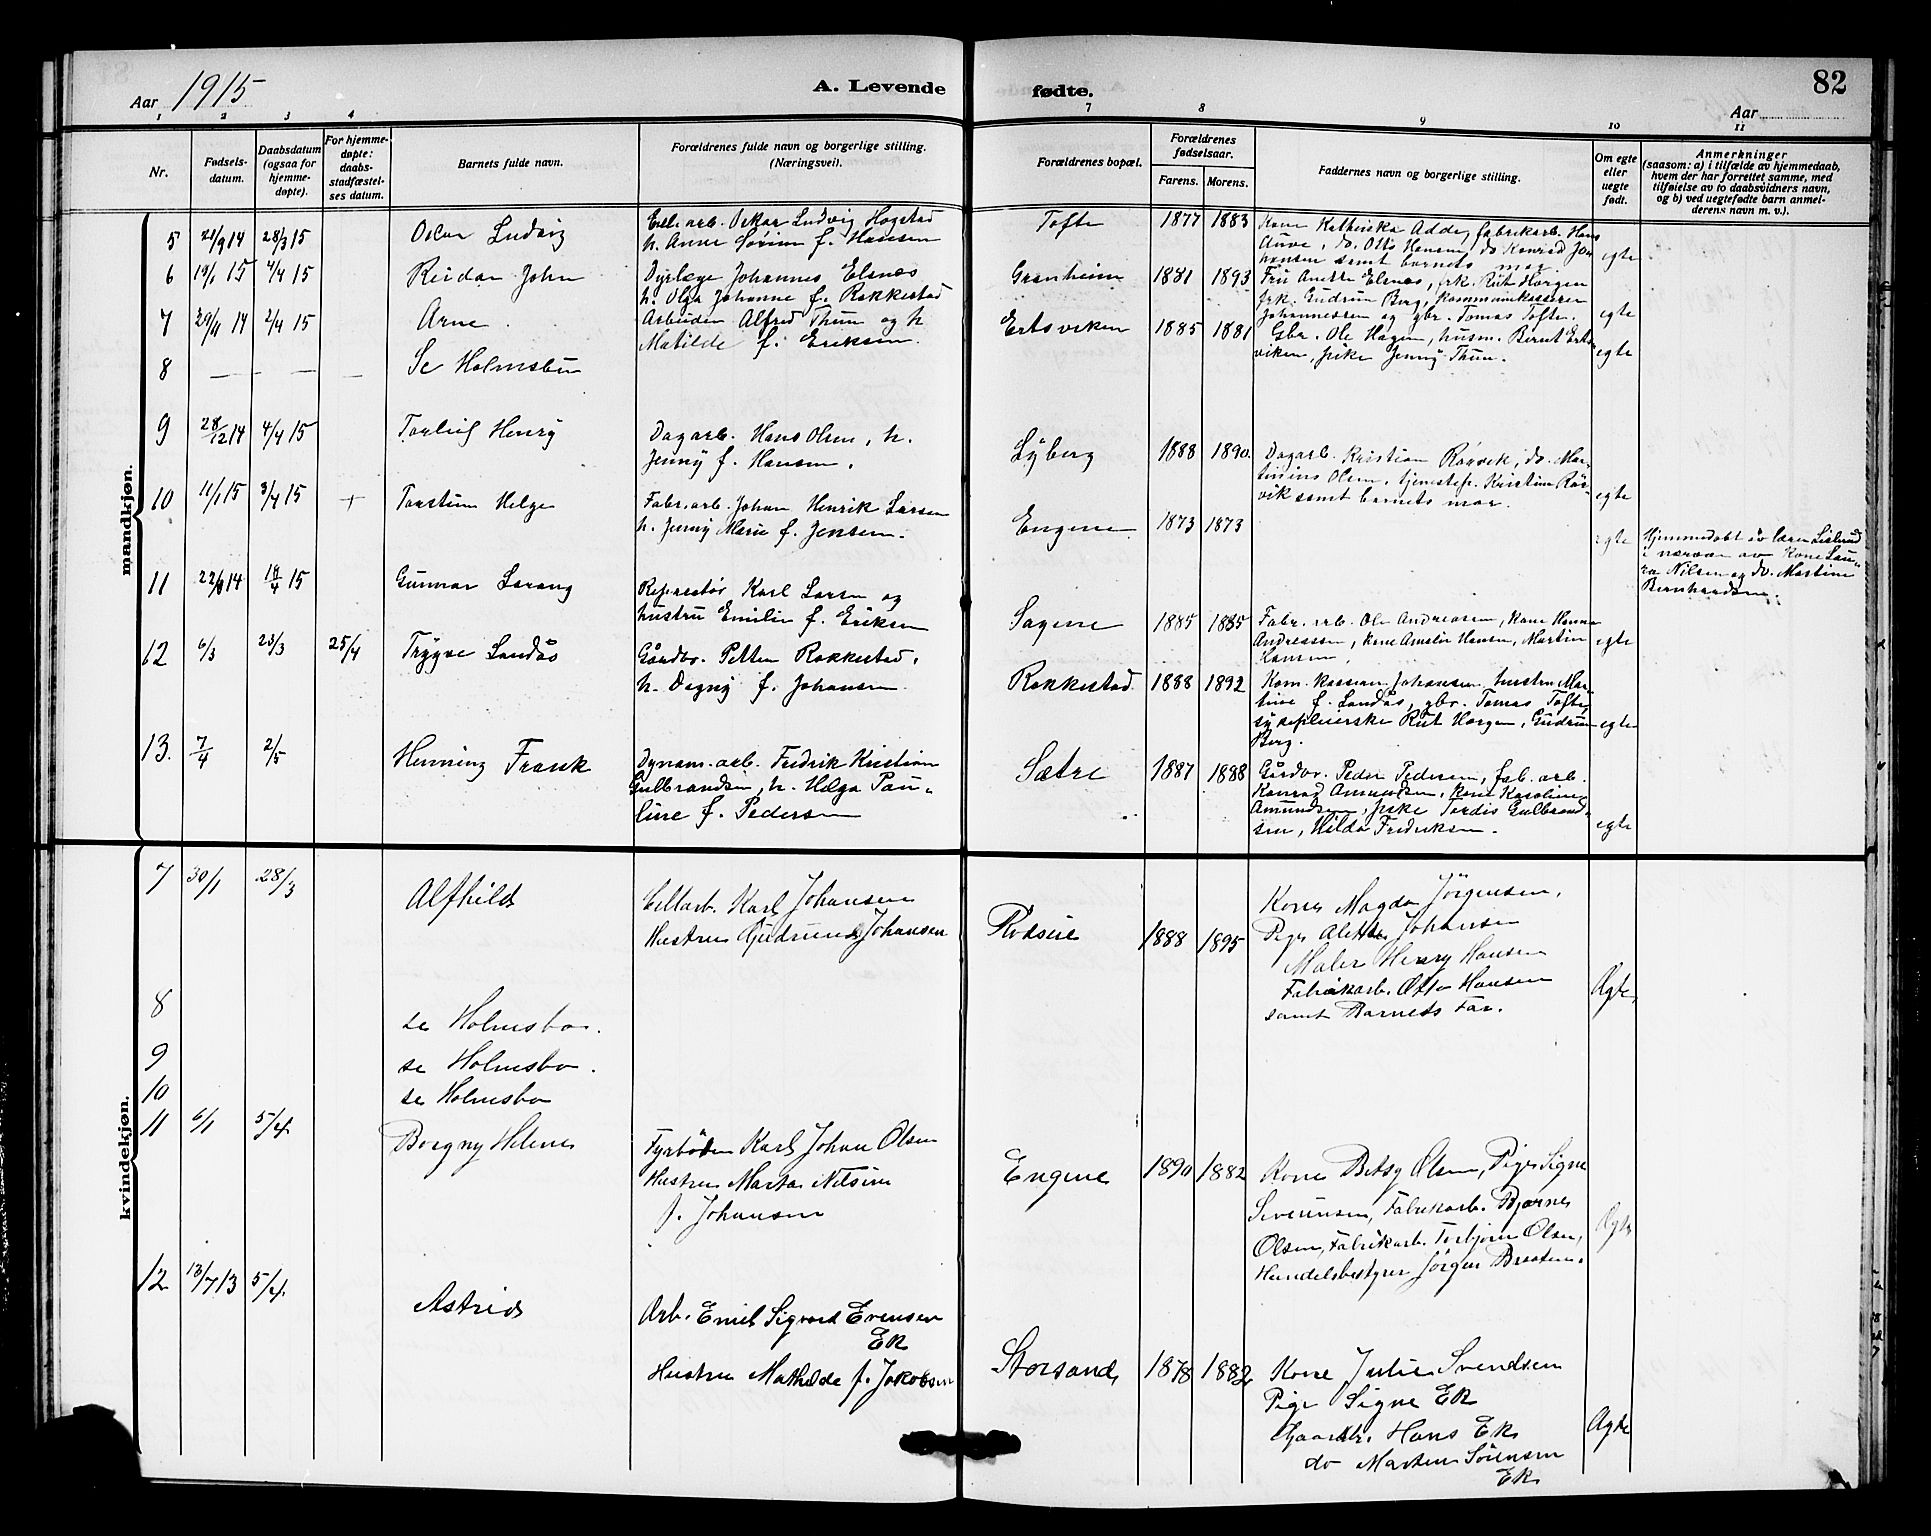 82
Aar 1915
A. Levende
fødte.
Aar
1 2 3 4 7 8 9 10 11
Nr.
Fødsels-
datum.
Daabsdatum
(ogsaa for
hjemme-
døpte).
For hjemme-
døpte:
daabs-
stadfæstel-
ses datum.
Barnets fulde navn.
Forældrenes fulde navn og borgerlige stilling.
(Næringsvei).
Forældrenes bopæl.
Forældrenes
fødselsaar.
Farens. Morens.
Faddernes navn og borgerlige stilling.
Om egte
eller
uegte
født.
Anmerkninger
(saasom: a) i tilfælde av hjemmedaab,
hvem der har forrettet samme, med
tilføielse av to daabsvidners navn,
og b) ved uegtefødte barn anmel-
derens navn m. v.).
mandkjøn.
5 21/9 14 28/3 15 Oskar Ludvig
arb. Oskar Ludvig Hogstad
h. Anne Sørine f. Hansen
Tofte 1877 1883
Kone Kathinka Adde, fabrikarb. Hans
Auve, do. Otto Hansen, do Konrad Jo-
hansen samt barnets mor.
egte
6 19/1 15 4/4 15 Reidar John
Dyrlæge Johannes Elsnes
h. Olga Johanne f. Rokkestad
Granheim 1881 1893
Fru Elsnes, frk. Rut Horgen
frk. Gudrun Berg, kommunekasserer
Johannessen og gbr. Tomas Tofte.
egte
7 29/11 14 2/4 15 Arne
Arbeider Alfred Thun og h.
Matilde f. Eriksen.
Ertsviken 1885 1881
Gbr. Ole Hagen, husm. Bernt Erts-
viken, pike Jenny Thun.
egte
8 — — — Se Holmsbu
9 28/12 14 4/4 15 Torleif Henry
Dagarb. Hans Olsen, h.
Jenny f. Hansen.
Lyberg 1888 1890
Dagarb. Kristian Rørvik, do. Mar-
tinius Olsen, tjenestep. Kristine Rør-
vik samt barnets mor.
egte
10 11/1 15 3/4 15 + Torstein Helge
Fabr. arb. Johan Henrik Larsen
h. Jenny Marie f. Jensen.
Engene 1873 1873
egte
Hjemmedøbt av lærer
i nærvær av Kone Lau-
ra Nilsen og do. Martine
Bernhardsen.
11 22/9 14 18/4 15 Gunnar
Reparatør Karl Larsen og
hustru Emilie f. Eriksen
Sagene 1885 1885
Fabr. arb. Ole Andreasen, Kone Hanna
Andreassen, kone Amalie Hansen, Martin
Hansen.
egte
12 6/3 23/3 25/4 Trygve Landås
Gårdbr. Petter Rokkestad,
h. Dagny f. Johansen.
Rokkestad 1888 1892
Kom. kasserer Johansen, hustru Mar-
tine f. Landås, gbr. Tomas Tofte,
sykepleierske Rut Horgen, Gudrun
Berg.
egte
13. 7/4 2/5 Henning Frank
Dynam. arb. Fredrik Kristian
Gulbrandsen, h. Helga Pau-
line f. Pedersen
Sætre 1887 1888
Gårdbr. Peder Pedersen, fab. arb.
Konrad Amundsen, kone Karoline
Amundsen, pike Tordis Gulbrand-
sen, Hilda Fredriksen.
egte
kvindekjøn.
7 30/1 28/3 Alfhild
Cellarb. Karl Johansen
Hustru Gudrun Johansen
Rødseie 1888 1895
Kone Magda Jörgensen,
Pige Alette Johansen
Maler Henry Hansen
Fabrikarb. Otto Hansen
samt Barnets Far.
Ægte
8 se Holmsbo.
9 se Holmsbo.
10 se Holmsbo
11 6/1 5/4 Borgny Helene
Fyrbøder Karl Johan Olsen
Hustru Marta Nilsine
f. Johansen
Engene 1890 1882
Kone Betsy Olsen, Pige Signe
Severinsen, Fabrikarb. Bjarne
Olsen, Fabrikarb. Torbjørn Olsen,
Handelsbestyrer Jørgen Braaten.
Ægte
12 13/7 13 5/4 Astrid
Arb. Emil Sigvard Evensen
Ek
Hustru Mathilde f. Jakobsen
Storsand 1878 1882
Kone Julie Svendsen
Pige Signe Ek
Gaardbr. Hans Ek
do Martin Sörensen
Ek
Ægte